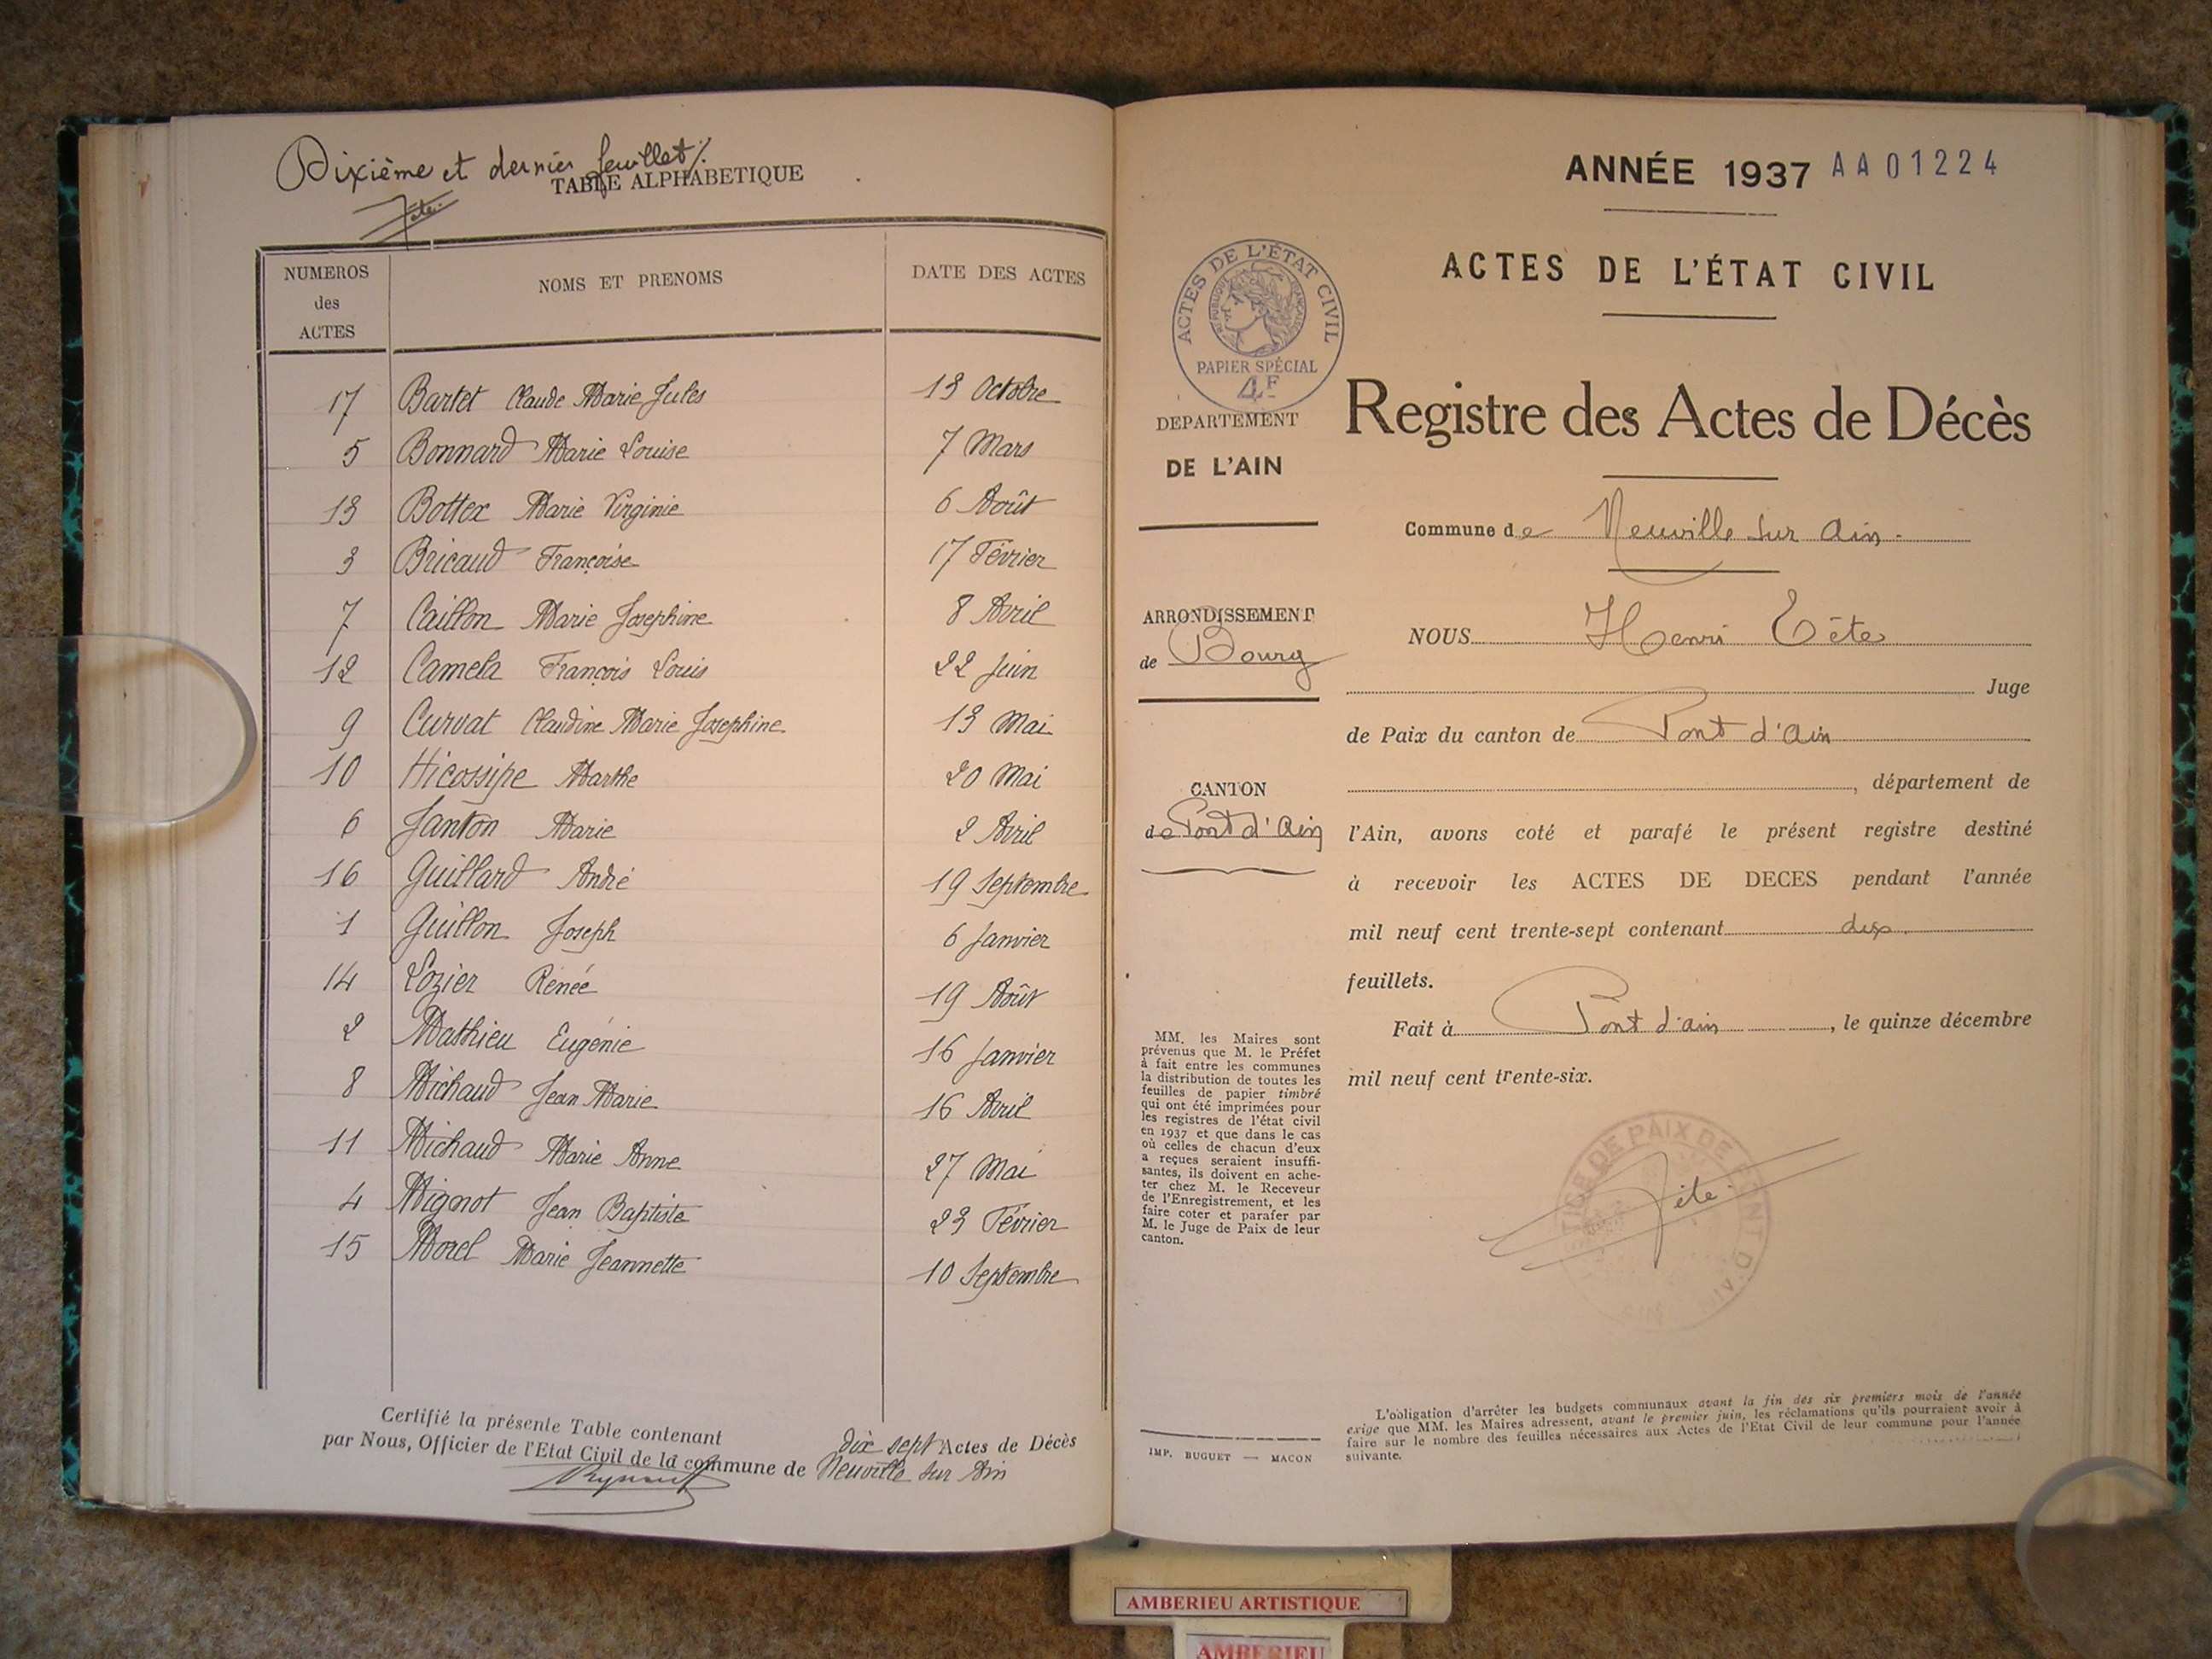 Dixième et dernier feuillet
Tête
TABLE ALPHABETIQUE
NUMEROS des ACTES NOMS ET PRENOMS DATE DES ACTES
17 Bartet Claude Marie Jules 13 Octobre
5 Bonnard Marie Louise 7 Mars
13 Bottex Marie Virginie 6 Août
3 Bricaud Françoise 17 Février
7 Caillon Marie Josephine 8 Avril
12 Camela François Louis 22 Juin
9 Curvat Claudine Marie Josephine 13 Mai
10 Hicossipe Marthe 20 Mai
6 Janton Marie 2 Avril
16 Guillard André 19 Septembre
1 Guillon Joseph 6 Janvier
14 Lozier Renée 19 Août
2 Mathieu Eugénie 16 Janvier
8 Michaud Jean Marie 16 Avril
11 Michaud Marie Anne 27 Mai
4 Mignot Jean Baptiste 23 Février
15 Morel Marie Jeannette 10 Septembre
Certifié la présente Table contenant dix sept Actes de Décès
par Nous, Officier de l'Etat Civil de la commune de Neuville sur Ain
ANNÉE 1937 AA01224
ACTES DE L'ÉTAT CIVIL
ACTES DE L'ÉTAT CIVIL
REPUBLIQUE FRANÇAISE
PAPIER SPÉCIAL
4F
DEPARTEMENT
DE L'AIN
Registre des Actes de Décès
Commune de Neuville sur Ain.
ARRONDISSEMENT
de Bourg
CANTON
de Pont d'Ain
NOUS Henri Tête
Juge
de Paix du canton de Pont d'Ain
, département de
l'Ain, avons coté et parafé le présent registre destiné
à recevoir les ACTES DE DECES pendant l'année
mil neuf cent trente-sept contenant dix
feuillets.
Fait à Pont d'ain, le quinze décembre
mil neuf cent trente-six.
MM. les Maires sont
prévenus que M. le Préfet
à fait entre les communes
la distribution de toutes les
feuilles de papier timbré
qui ont été imprimées pour
les registres de l'état civil
en 1937 et que dans le cas
où celles de chacun d'eux
a reçues seraient insuffi-
santes, ils doivent en ache-
ter chez M. le Receveur
de l'Enregistrement, et les
faire coter et parafer par
M. le Juge de Paix de leur
canton.
JUSTICE DE PAIX DE PONT D'AIN
Tête
IMP. BUGUET — MACON
L'obligation d'arrêter les budgets communaux avant la fin des six premiers mois de l'année
exige que MM. les Maires adressent, avant le premier juin, les réclamations qu'ils pourraient avoir à
faire sur le nombre des feuilles nécessaires aux Actes de l'Etat Civil de leur commune pour l'année
suivante.
AMBERIEU ARTISTIQUE
AMBERIEU